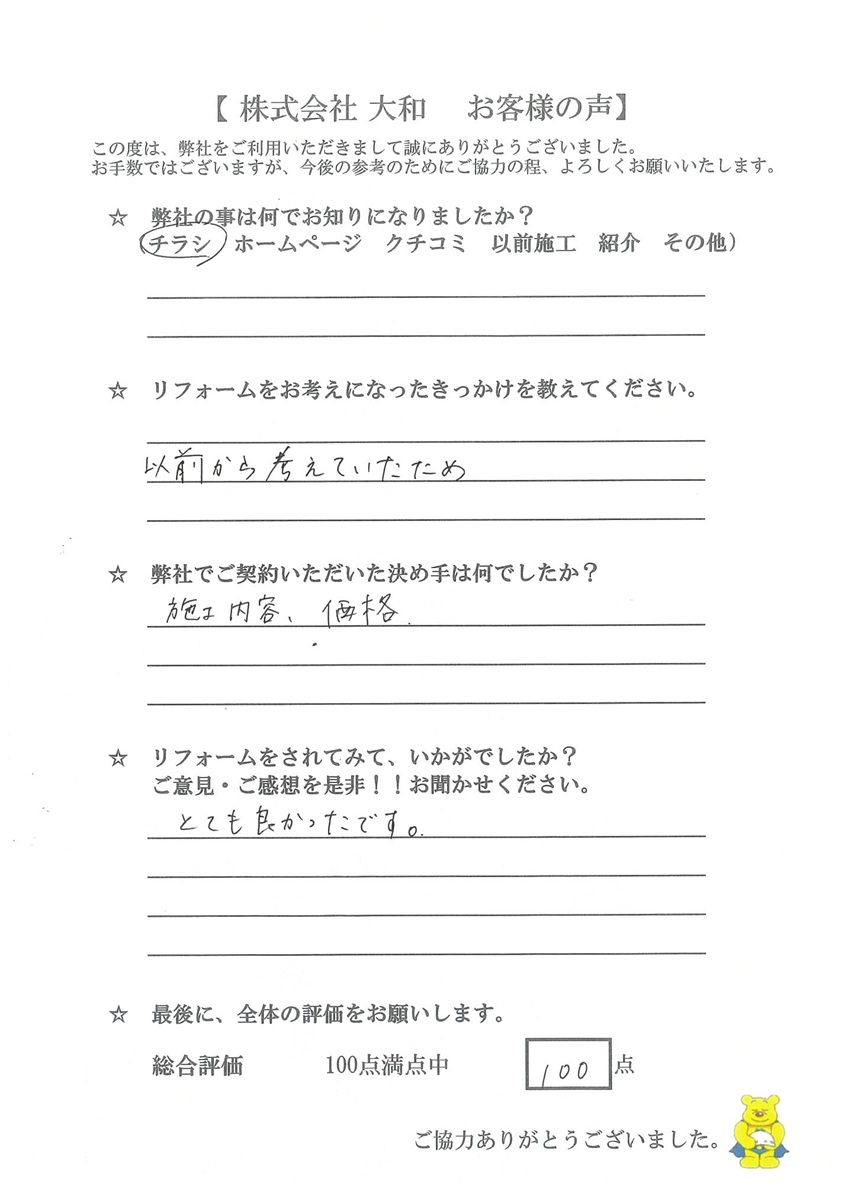 【 株式会社 大和　お客様の声】
この度は、弊社をご利用いただきまして誠にありがとうございました。
お手数ではございますが、今後の参考のためにご協力の程、よろしくお願いいたします。
☆　弊社の事は何でお知りになりましたか？
（チラシ　ホームページ　クチコミ　以前施工　紹介　その他）
☆　リフォームをお考えになったきっかけを教えてください。
以前から考えていたため
☆　弊社でご契約いただいた決め手は何でしたか？
施工内容、価格.
☆　リフォームをされてみて、いかがでしたか？
ご意見・ご感想を是非！！お聞かせください。
とても良かったです。
☆　最後に、全体の評価をお願いします。
総合評価　100点満点中　100 点
ご協力ありがとうございました。